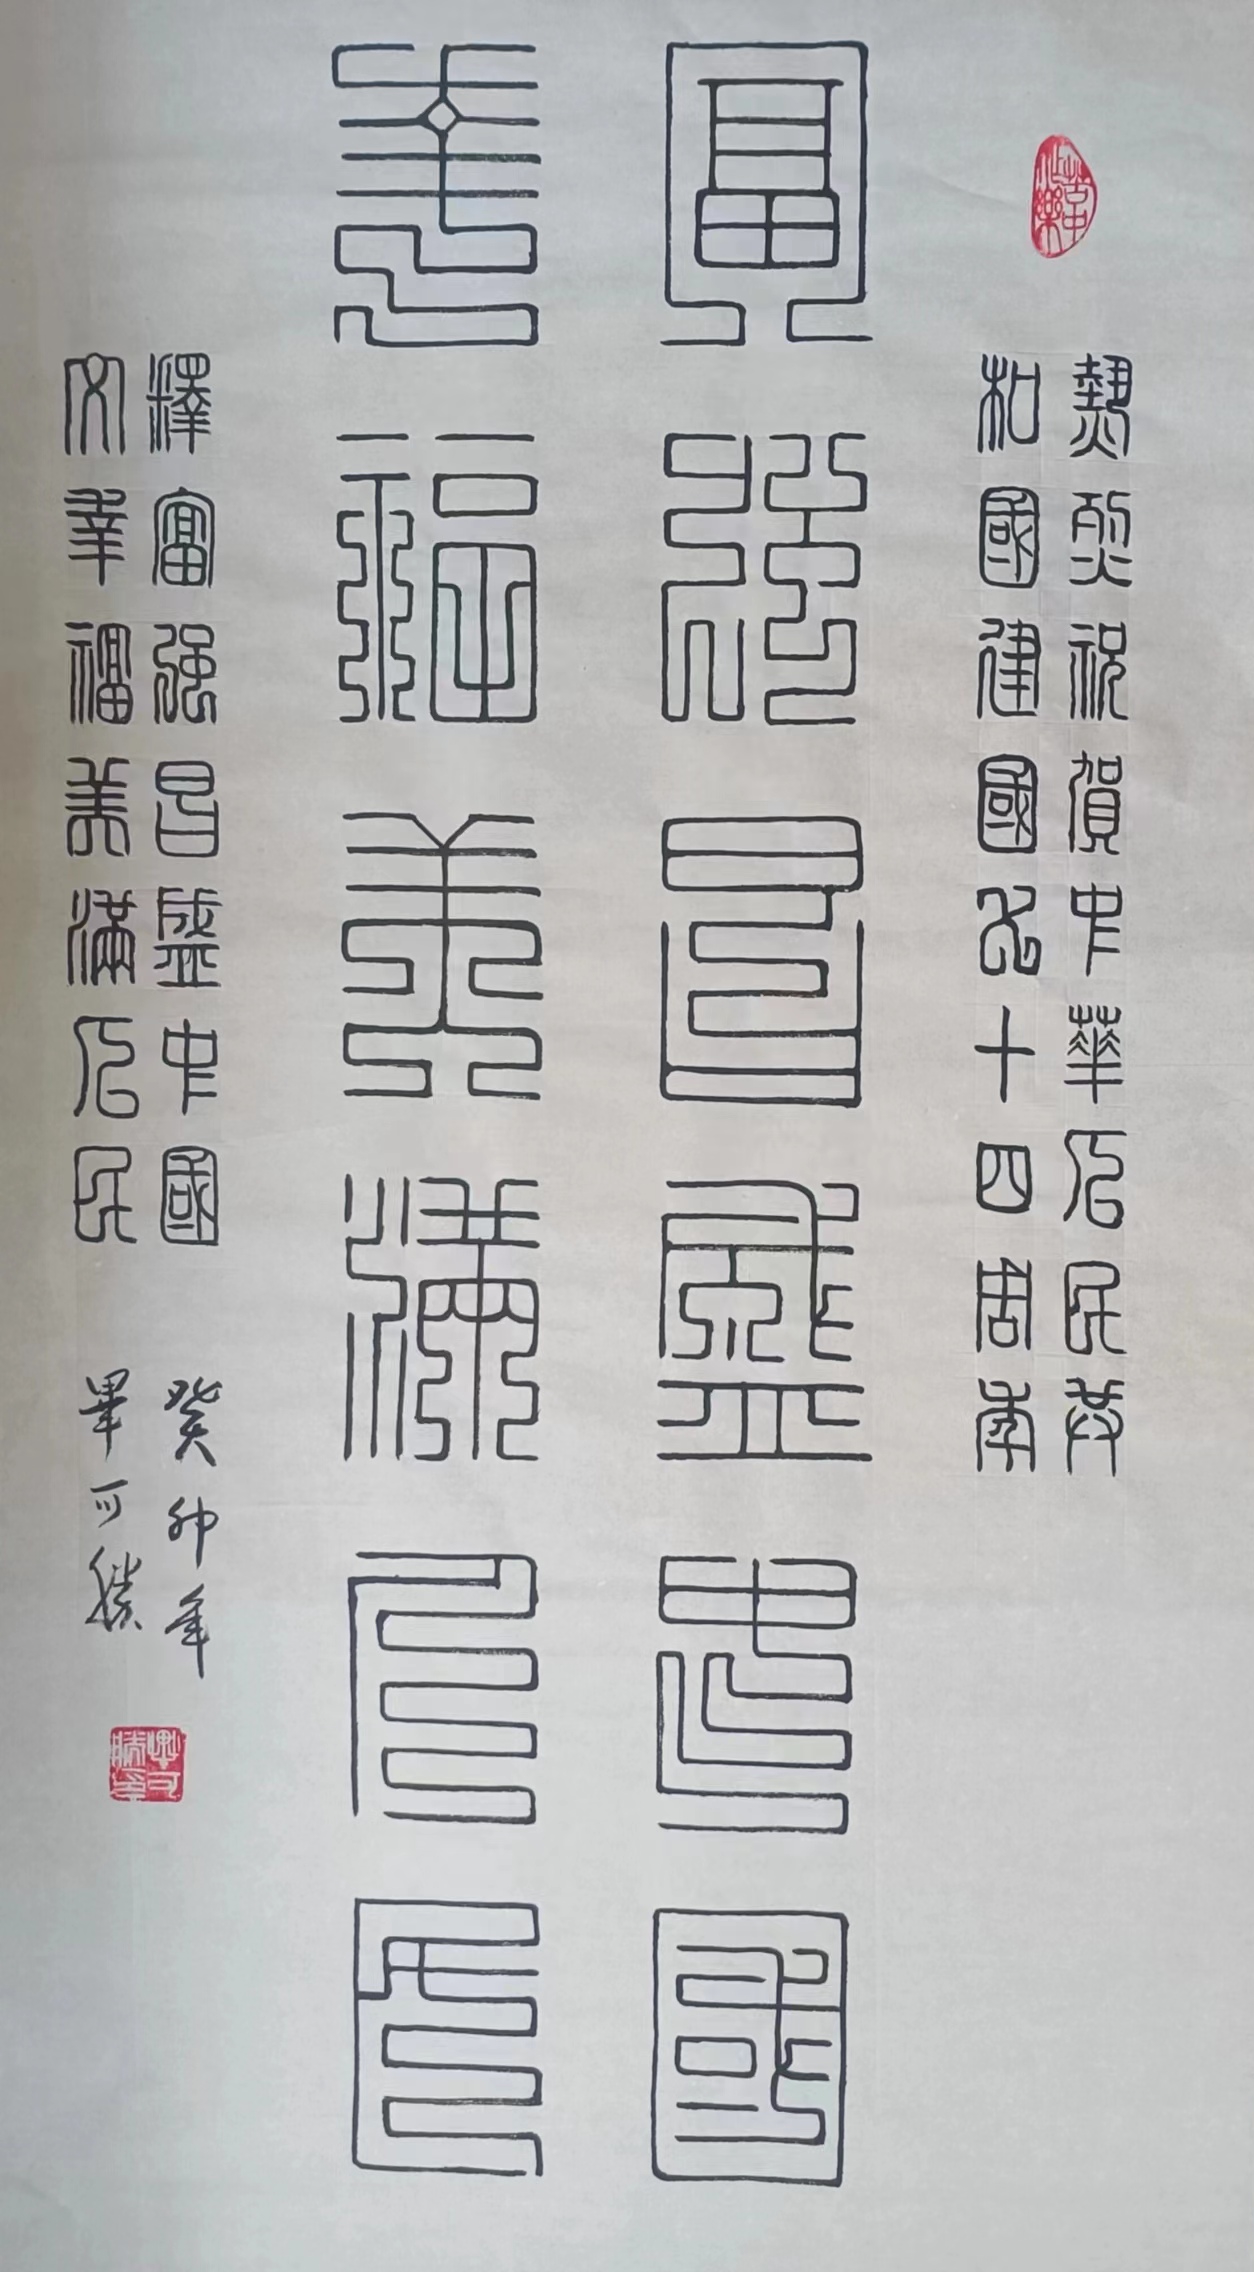 熱烈祝賀中華人民共
和國建國七十四周年
富强昌盛中國
幸福美滿人民
釋富强昌盛中國 癸卯年
文幸福美滿人民 畢可勝
畢可勝印